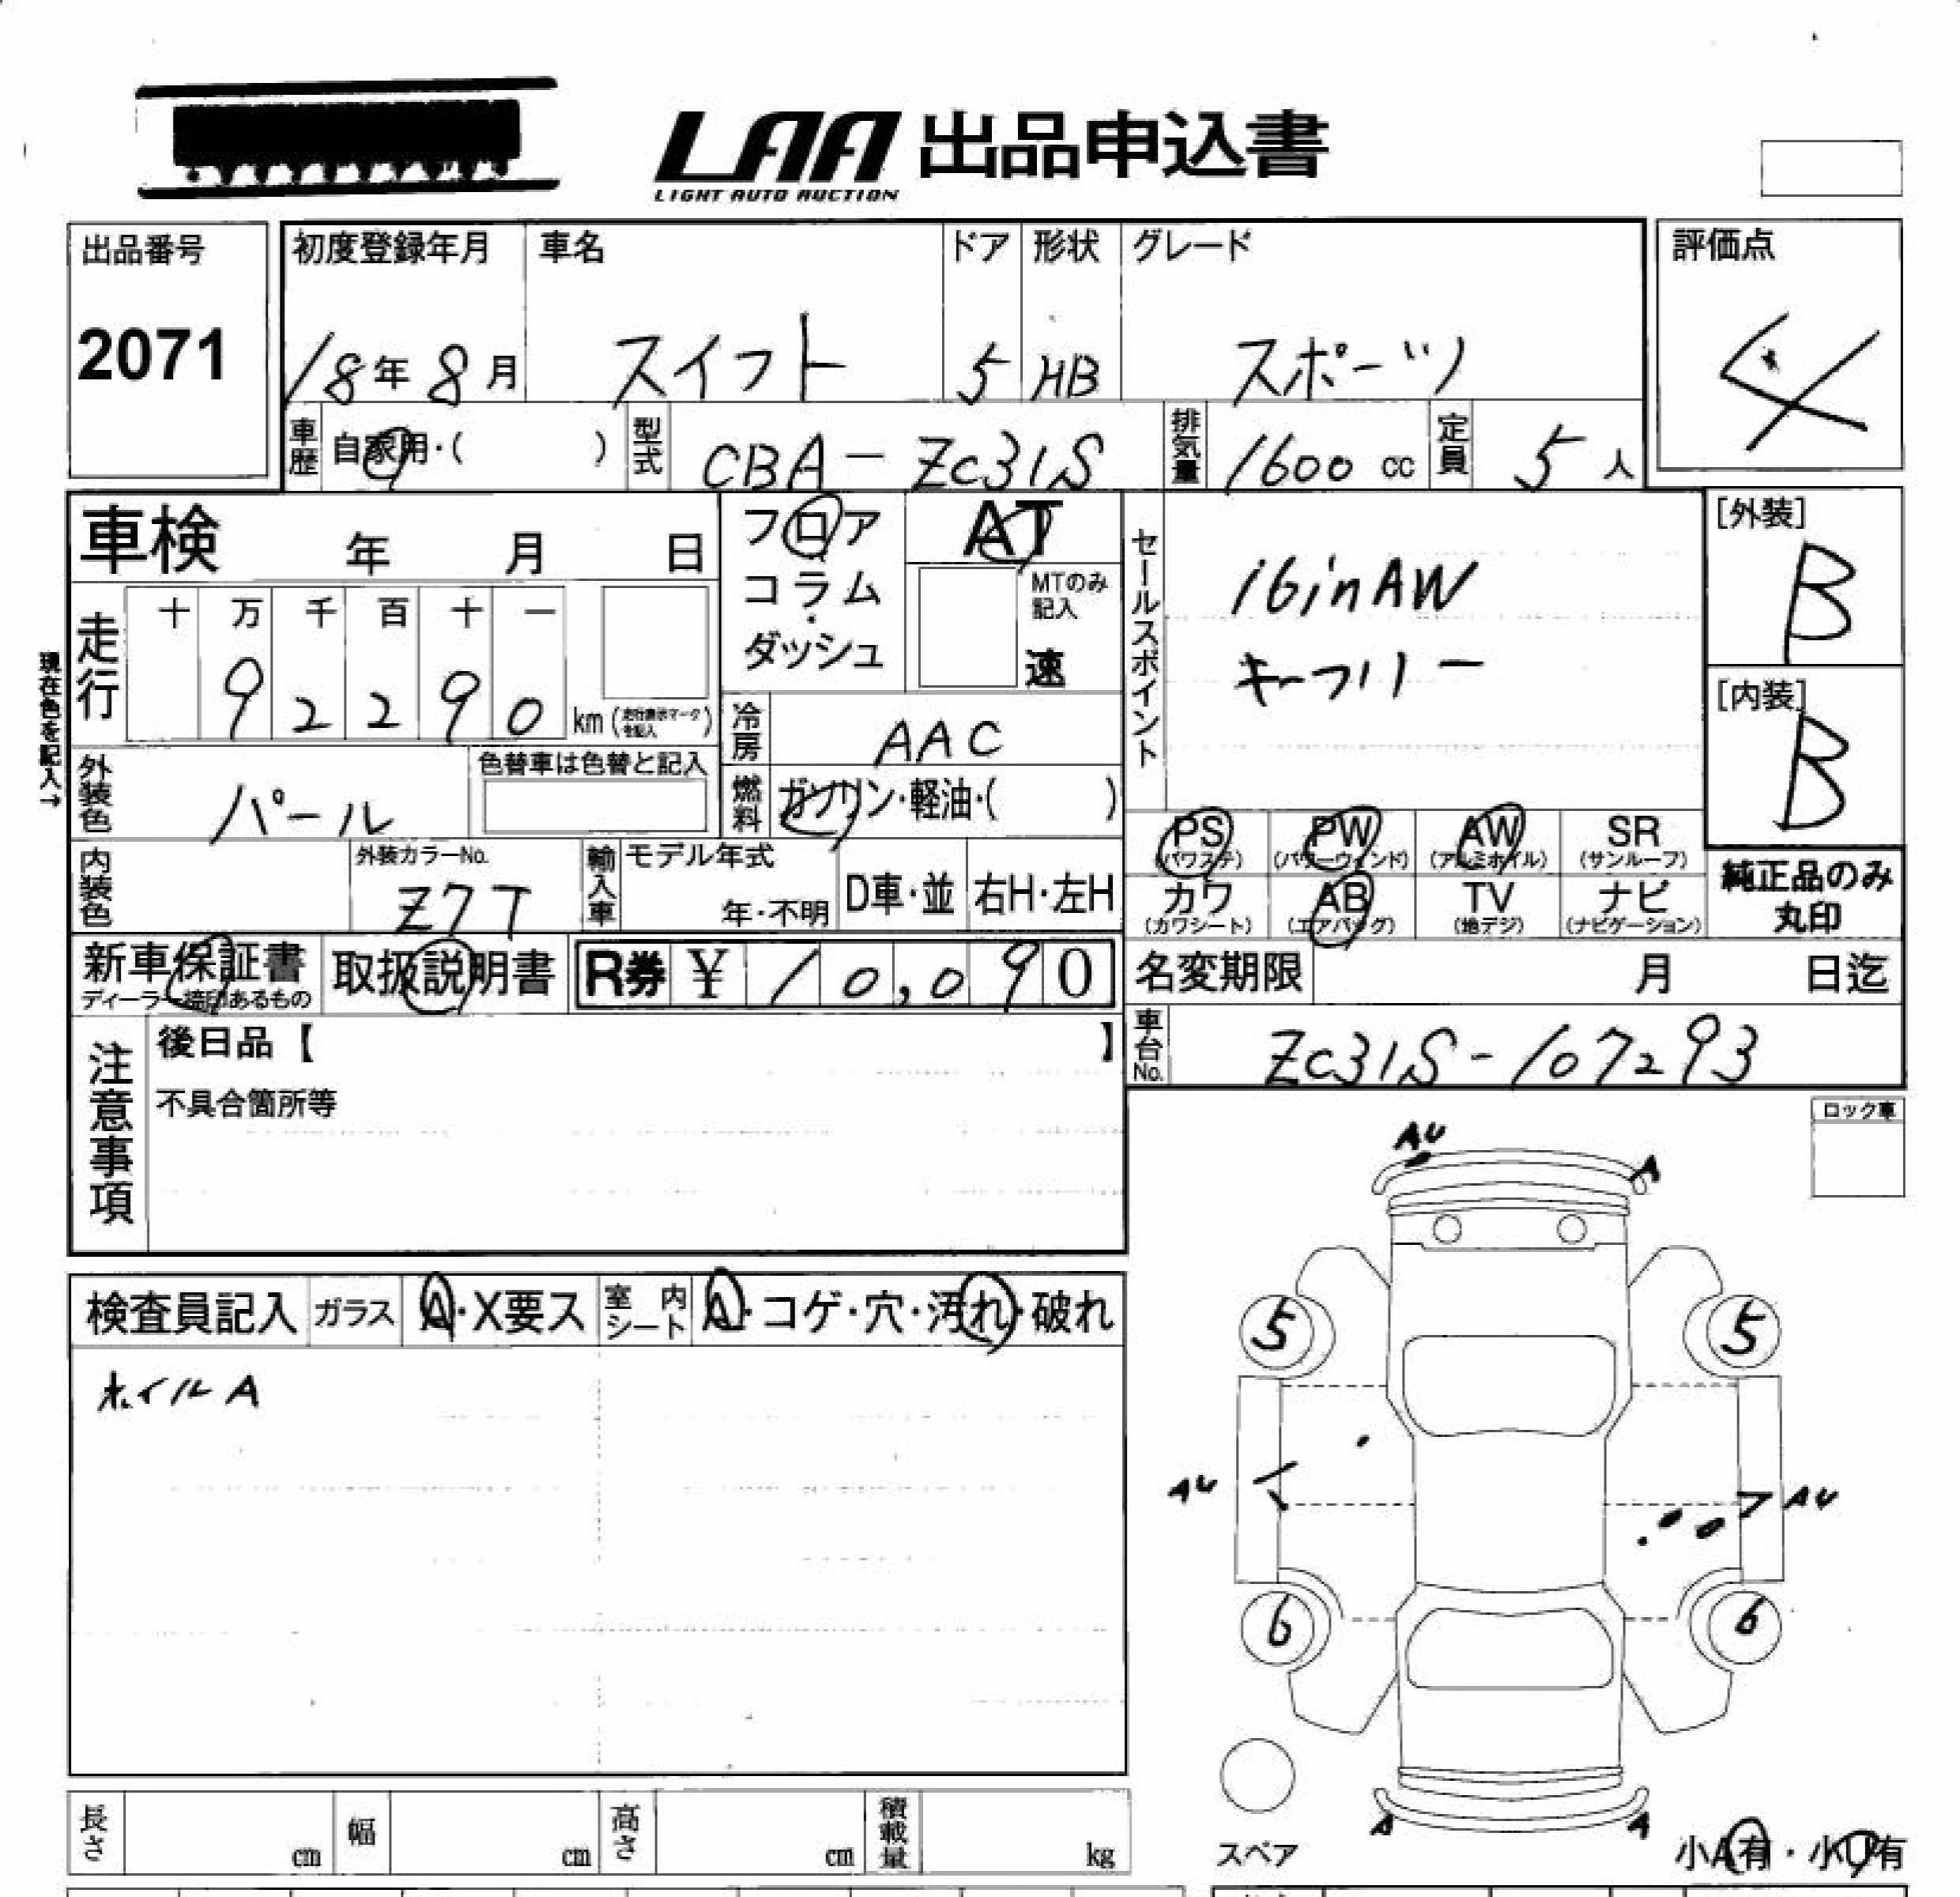 LAA 出品申込書
LIGHT AUTO AUCTION
出品番号
2071
初度登録年月 車名 ドア 形状 グレード
18年8月 スイフト 5 HB スポーツ
評価点
4
車歴 自家用・( ) 型式 CBA-ZC31S 排気量 1600cc 定員 5人
車検 年 月 日
フロア
コラム・
ダッシュ
AT
MTのみ記入
速
セールスポイント
16inAW
キーフリー
[外装]
B
[内装]
B
現在色を記入→
走行 十 万 千 百 十 一
9 2 2 9 0 km(走行表示マークを記入)
冷房 AAC
外装色 パール 色替車は色替と記入
燃料 ガソリン・軽油・( )
内装色 外装カラーNo. Z7T
輸入車 モデル年式 年・不明 D車・並 右H・左H
PS(パワステ) PW(パワーウィンド) AW(アルミホイル) SR(サンルーフ)
カワ(カワシート) AB(エアバッグ) TV(地デジ) ナビ(ナビゲーション)
純正品のみ
丸印
新車保証書 取扱説明書 R券 ¥ 10,090
ディーラー捺印あるもの
名変期限 月 日迄
車台No. ZC31S-107293
注意事項
後日品【 】
不具合箇所等
ロック車
検査員記入 ガラス A・X要ス 室内シート A・コゲ・穴・汚れ・破れ
ホイルA
AU A
5 5
AU AU
6 6
A A
スペア
小A有・小U有
長さ cm 幅 cm 高さ cm 積載量 kg